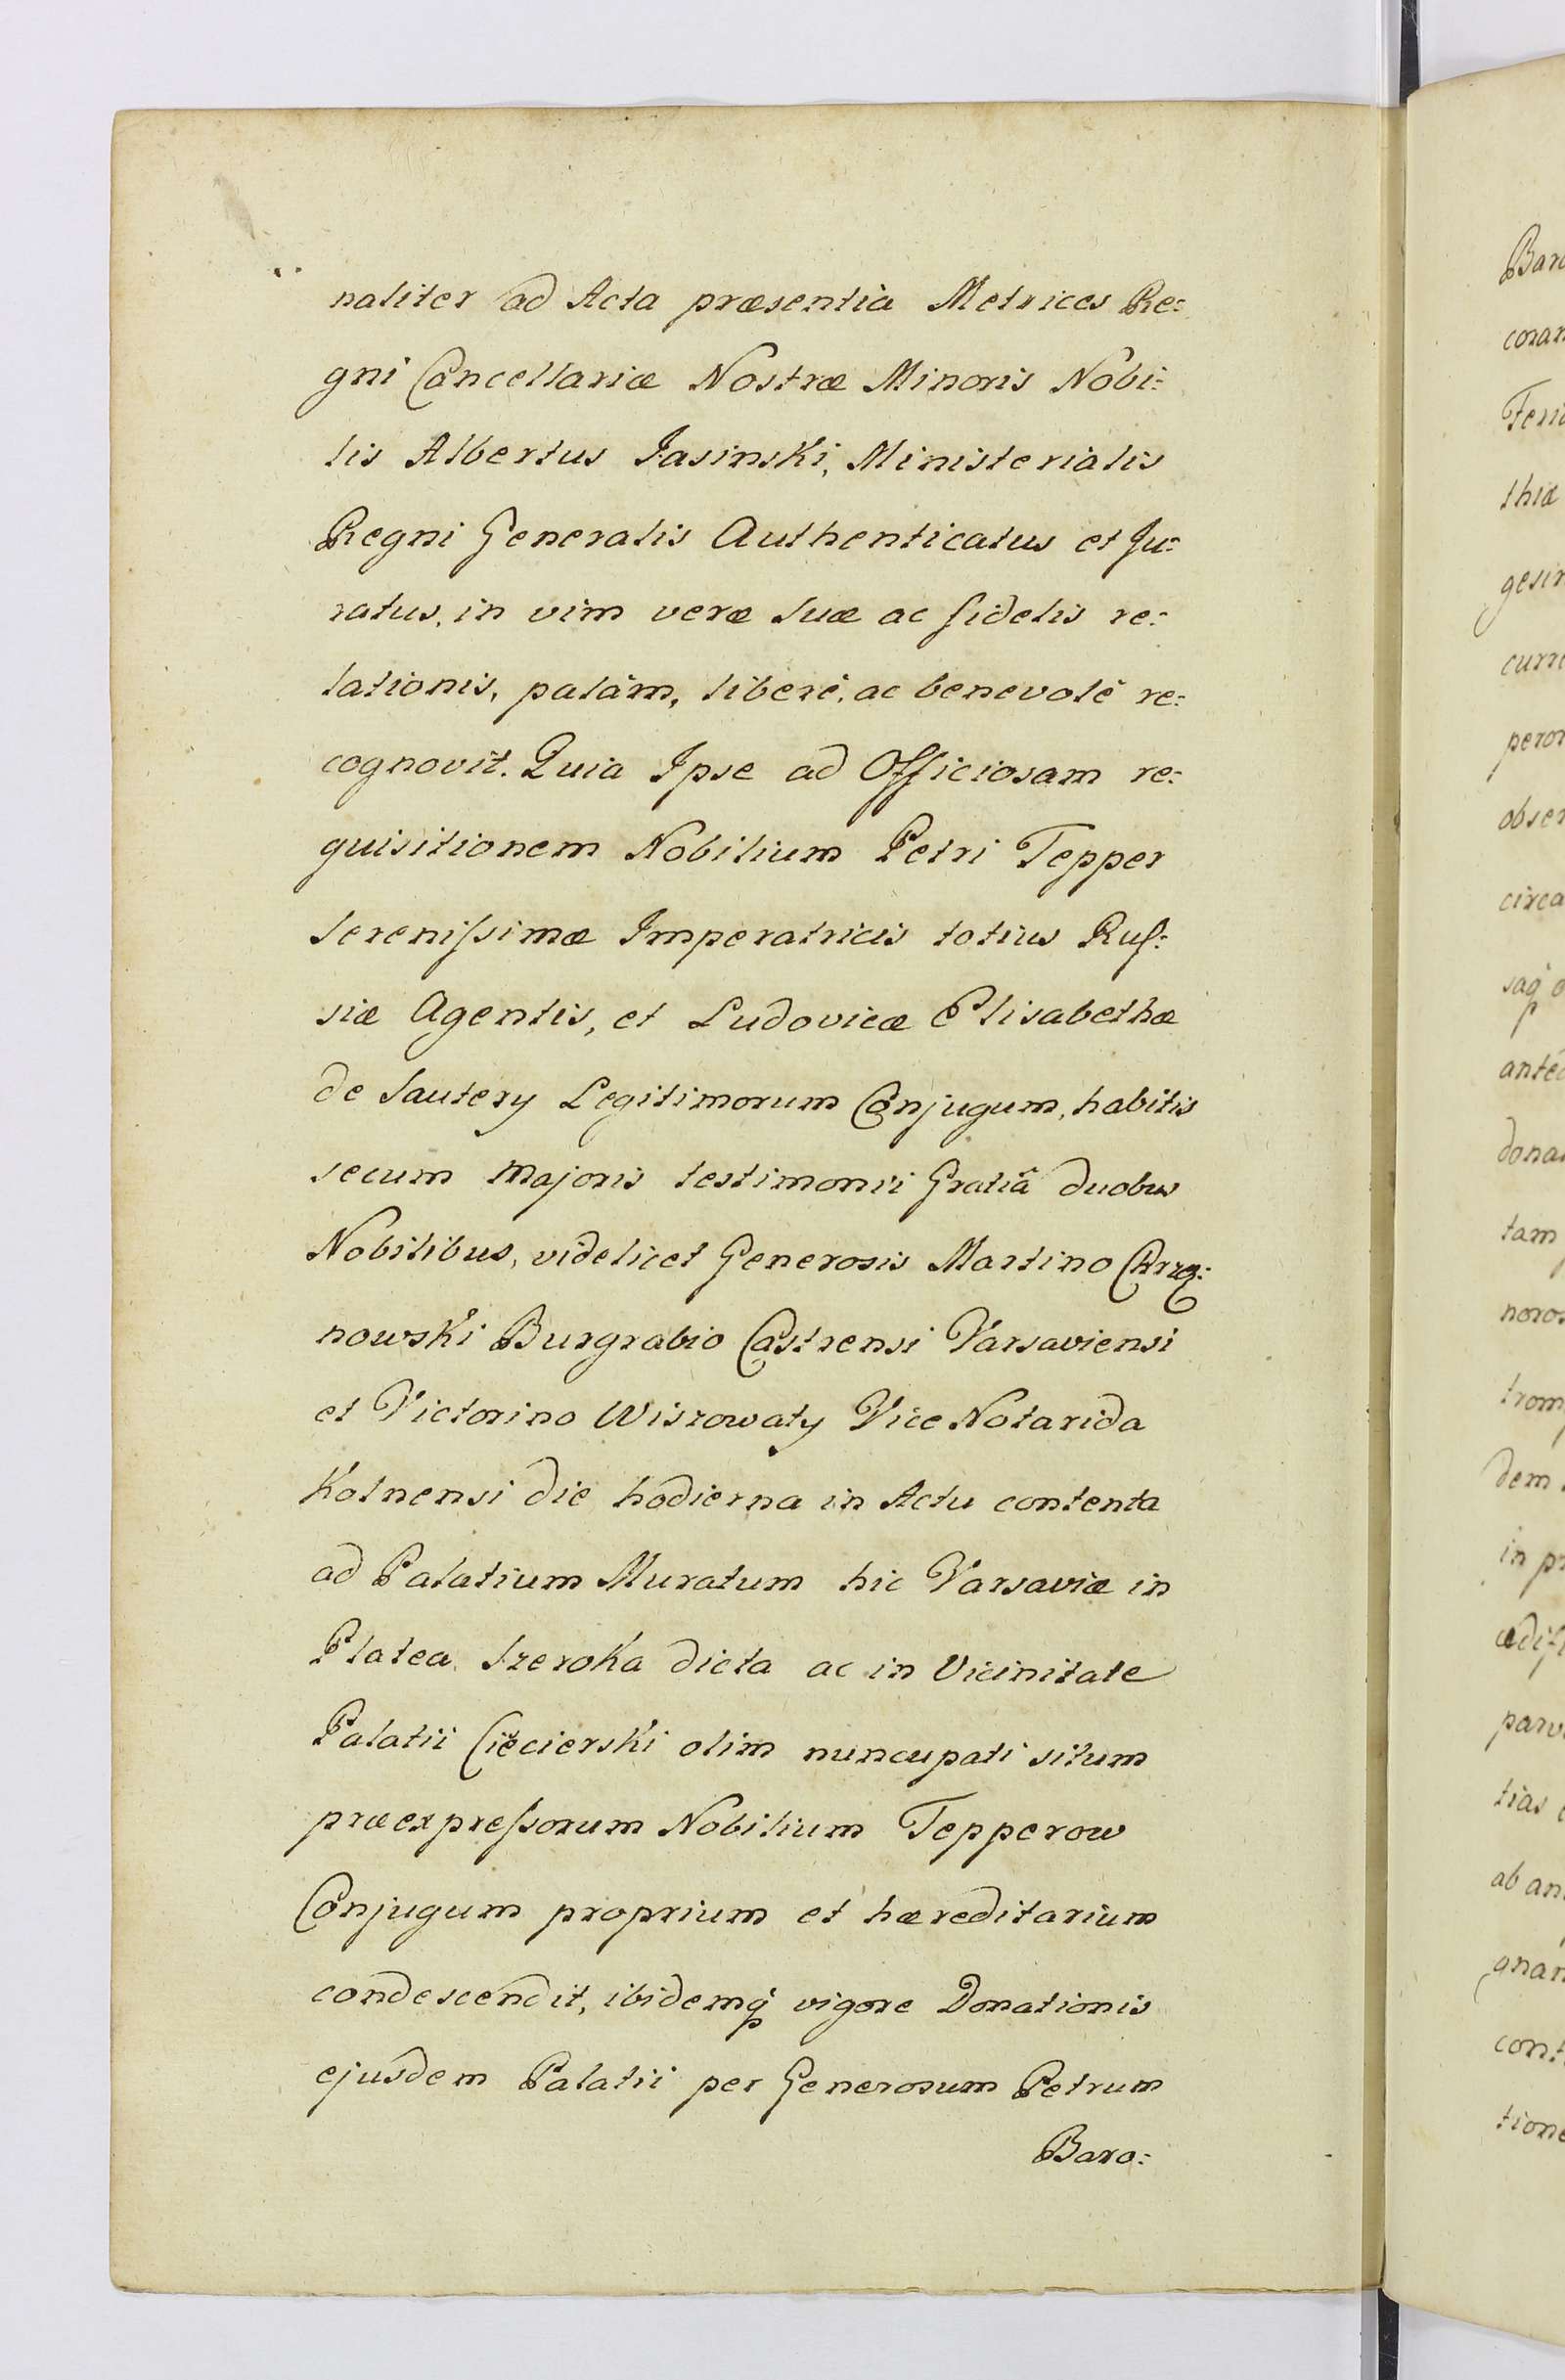 naliter ad Acta præsentia Metrices Re:
gni Cancellariæ Nostræ Minoris Nobi:
lis Albertus Jasinski, Ministerialis
Regni Generalis Authenticatus et Ju:
ratus, in vim veræ suæ ac fidelis re:
lationis, palàm, liberè, ac benevolè re:
cognovit. Quia Ipse ad Officiosam re:
quisitionem Nobilium Petri Tepper
Serenissimæ Imperatricis totius Rus:
siæ Agentis, et Ludovicæ Elisabethæ
de Sautery Legitimorum Conjugum, habitis
secum Majoris testimonii Gratiâ duobus
Nobilibus, videlicet Generosis Martino
nowski Burgrabio Castrensi Varsaviensi
et Victorino Wiszowaty Vice Notarida
Kolnensi die hodierna in Actu contenta
ad Palatium Muratum hic Varsaviæ in
Platea Szeroka dicta ac in Vicinitate
Palatii Ciecierski olim nuncupati situm
præexpressorum Nobilium Tepperow
Conjugum proprium et hæreditarium
condescendit, ibidemq vigore Donationis
ejusdem Palatii per Generosum Petrum
Baro:
Baro
coram
thiæ
obser
circa
tam
dem
in
tias
ab
cont
tione